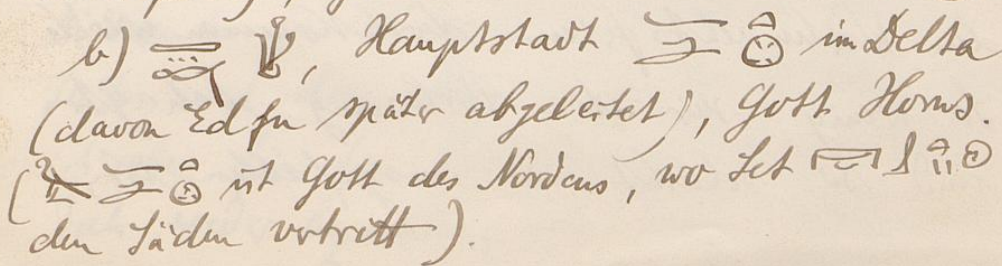 b) , Hauptstadt im Delta
(davon Edfu später abgeleitet), Gott Horus.
( ist Gott des Nordens, wo Set
den Süden vertritt).